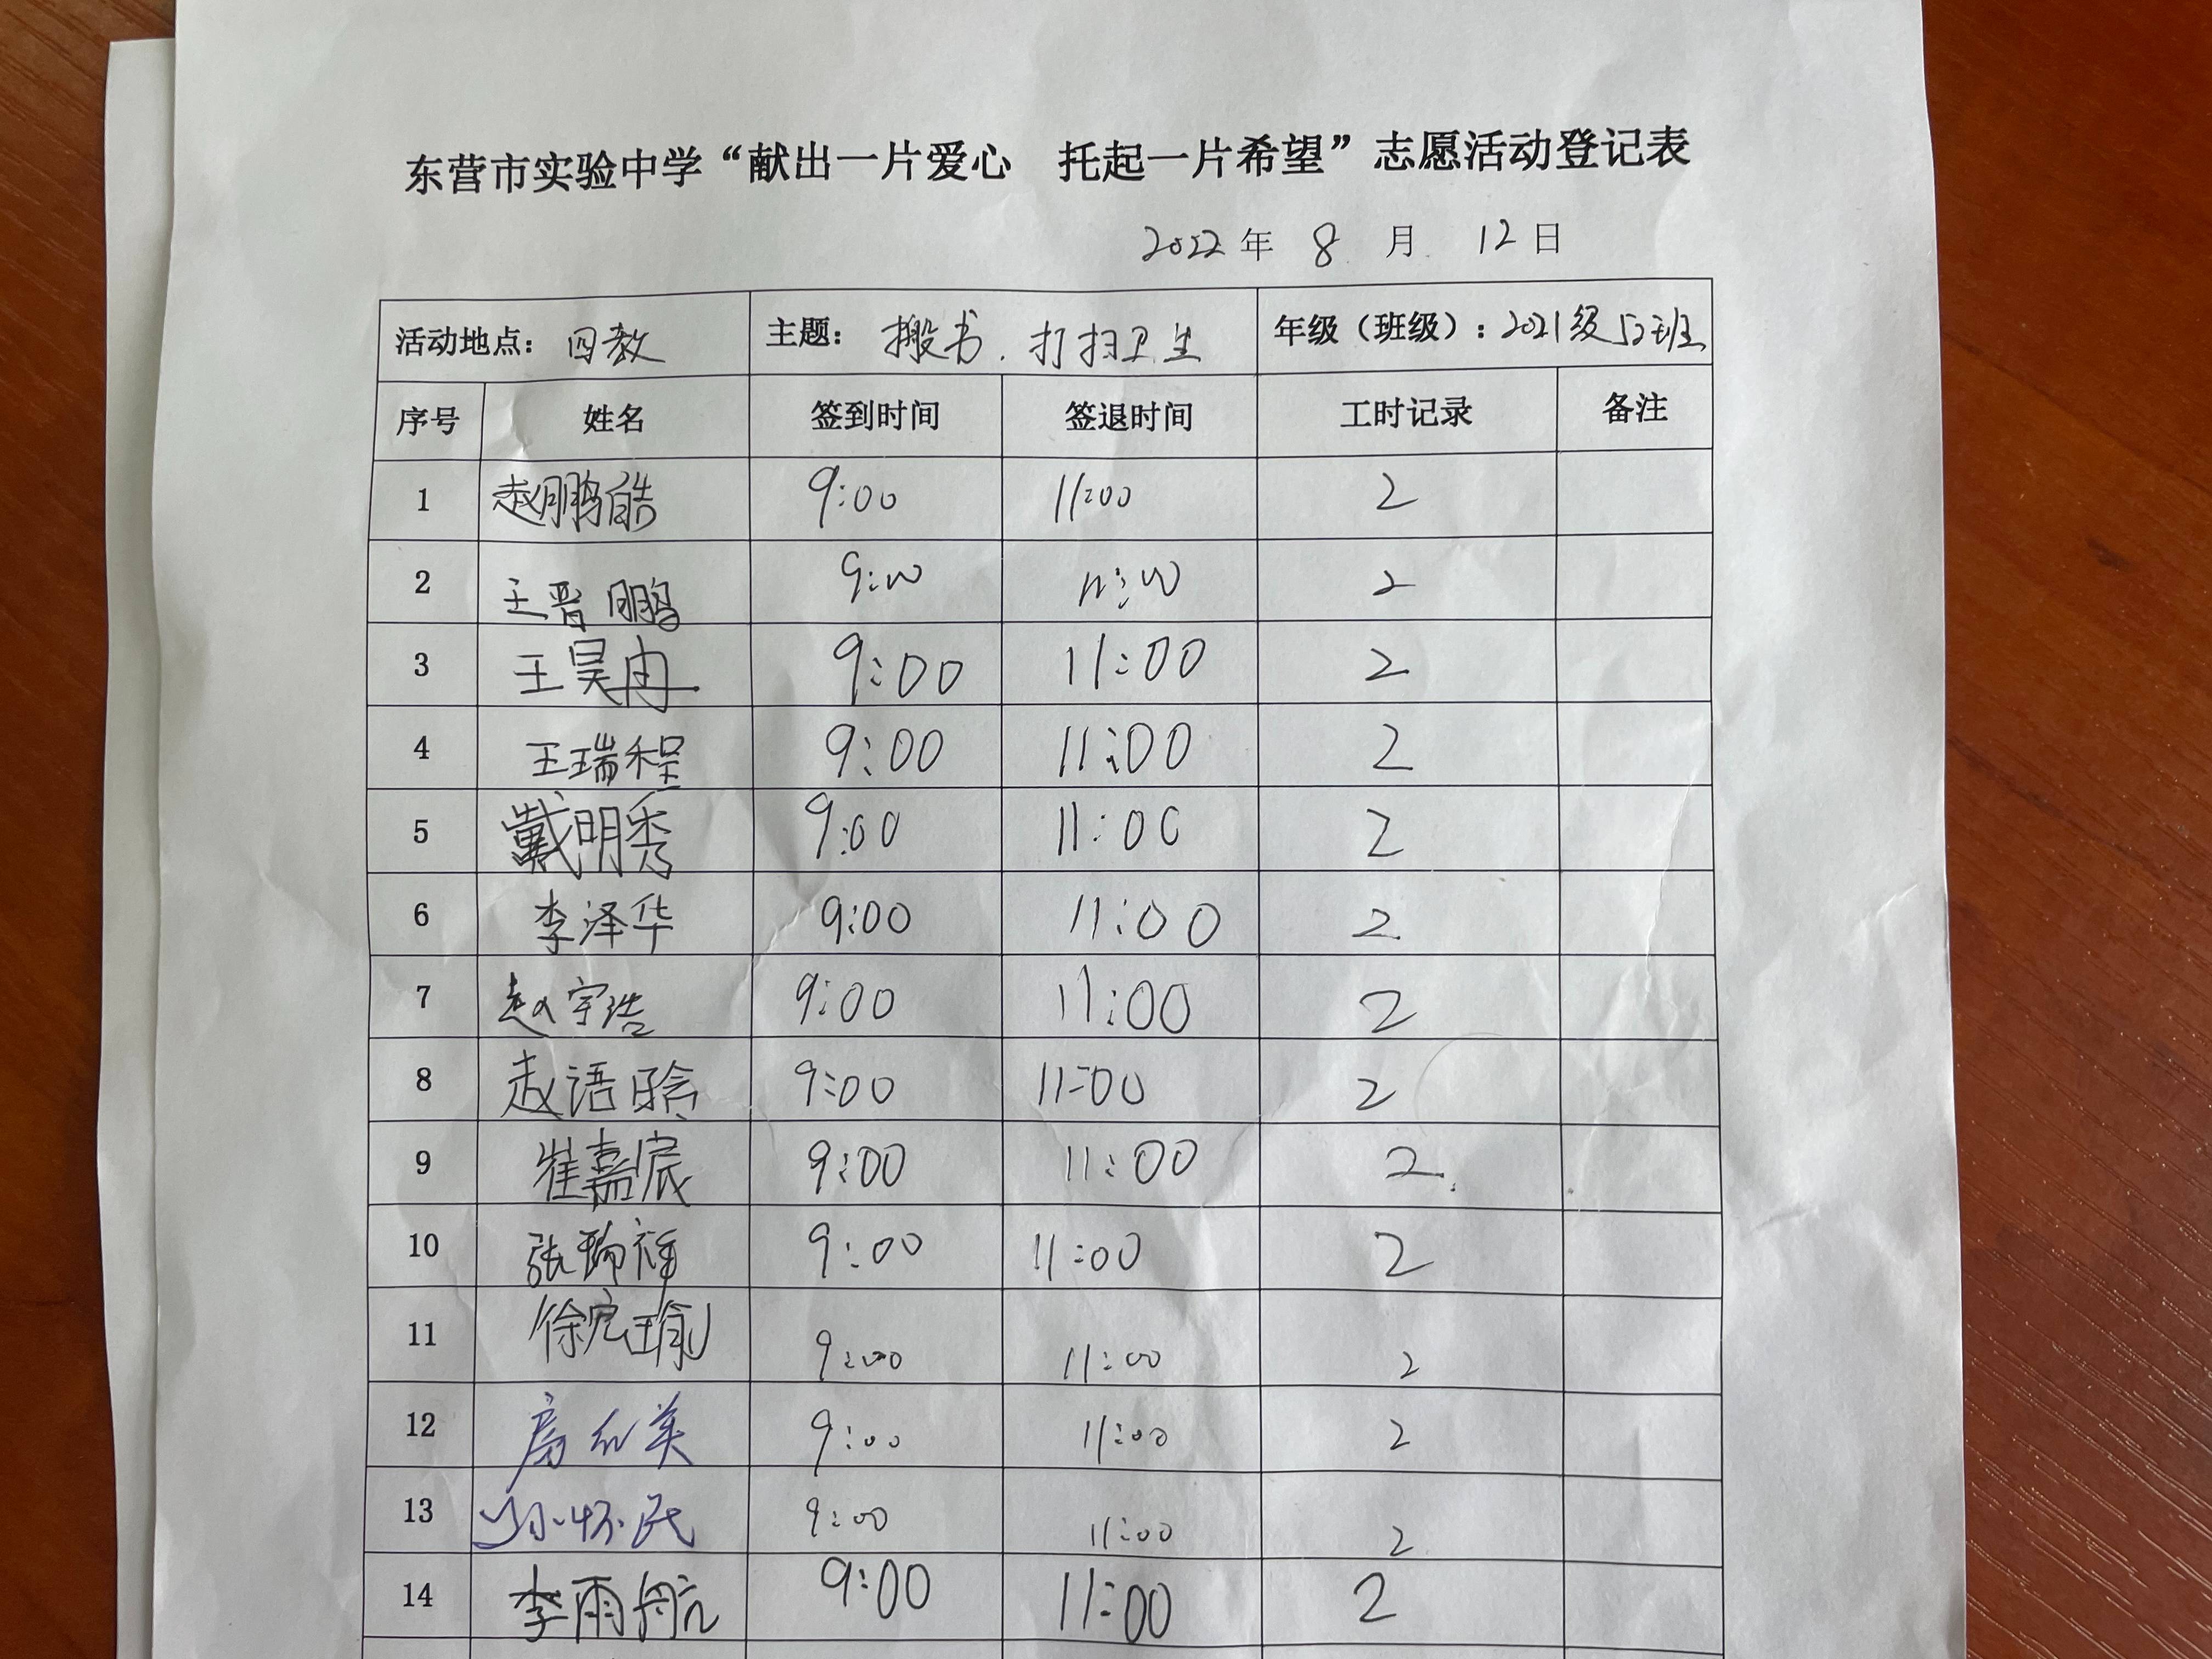 东营市实验中学“献出一片爱心 托起一片希望”志愿活动登记表
2022年 8 月 12日
活动地点：四教 主题：搬书．打扫卫生 年级（班级）：2021级52班
序号 姓名 签到时间 签退时间 工时记录 备注
1 赵鹏皓 9:00 11:00 2
2 王晋鹏 9:00 11:00 2
3 王昊冉 9:00 11:00 2
4 王瑞程 9:00 11:00 2
5 戴明秀 9:00 11:00 2
6 李泽华 9:00 11:00 2
7 赵宇浩 9:00 11:00 2
8 赵语晗 9:00 11:00 2
9 崔嘉宸 9:00 11:00 2
10 张瑞祥 9:00 11:00 2
11 徐宏瑜 9:00 11:00 2
12 9:00 11:00 2
13 孙怀民 9:00 11:00 2
14 李雨航 9:00 11:00 2